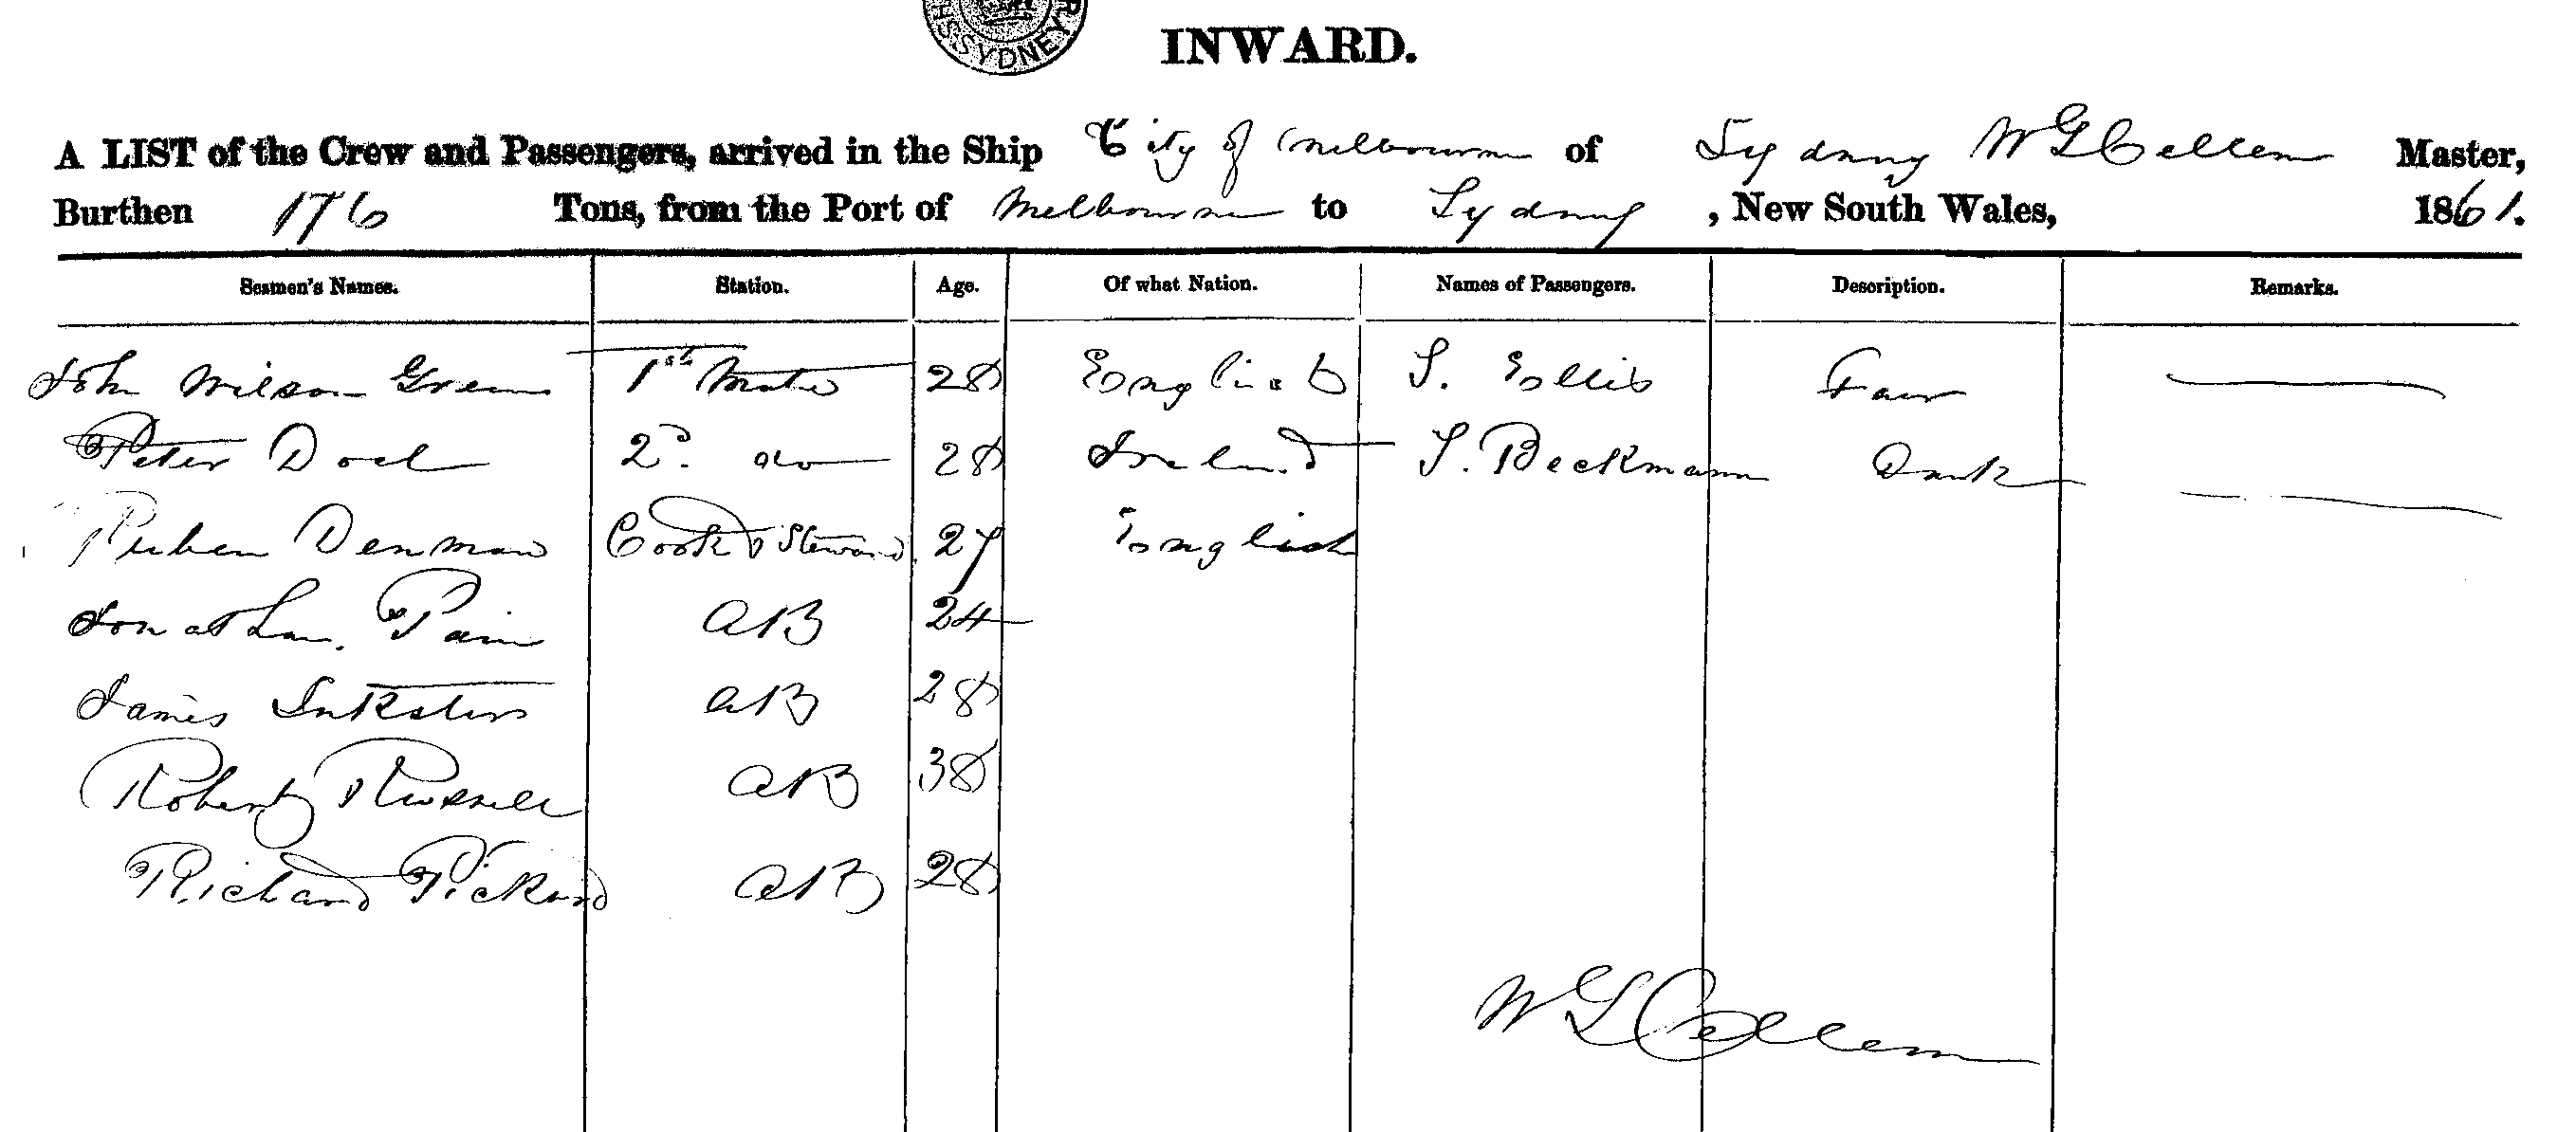 SYDNEY
INWARD.
A LIST of the Crew and Passengers, arrived in the Ship City of Melbourne of Sydney W G Cellem Master,
Burthen 176 Tons, from the Port of Melbourne to Sydney , New South Wales, 1861.
Seamen's Names. Station. Age. Of what Nation. Names of Passengers. Description. Remarks.
John Wilson Green 1st Mate 28 English S. Ellis
Peter Doel 2d do 28 Ireland S. Beckmann
Reuben Denman Cook & Steward 27 English
Jonathan Pain AB 24
James Inkster AB 28
Robert Russell AB 38
Richard Pickard AB 28
W G Cellem